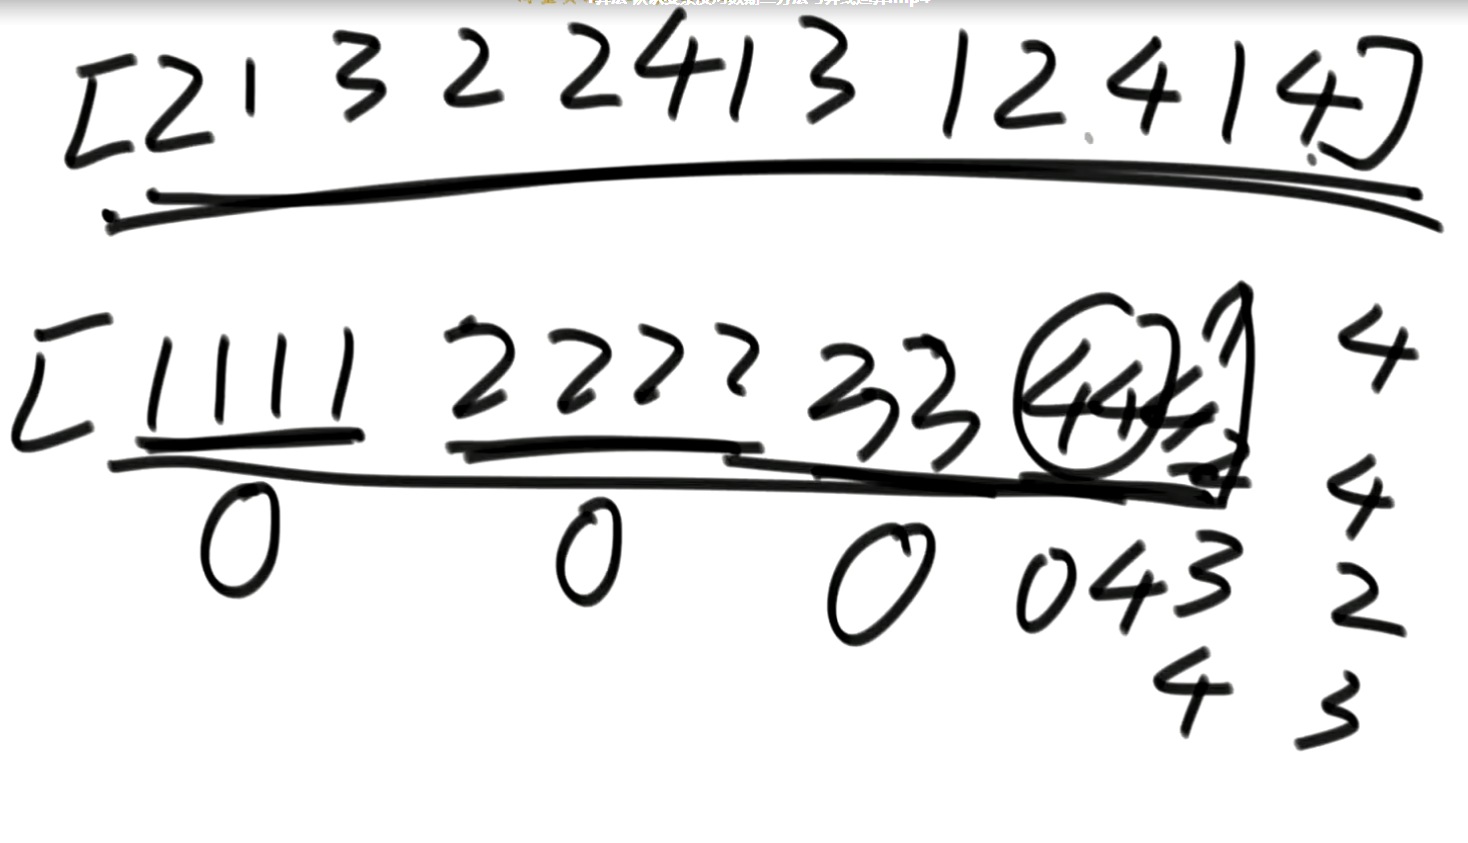 [2 1 3 2 2 4 1 3 1 2 4 1 4]
[1 1 1 1 2 2 2 2 3 3 4 4 4] 4
4
0 0 0 0 4 3 2
4 3